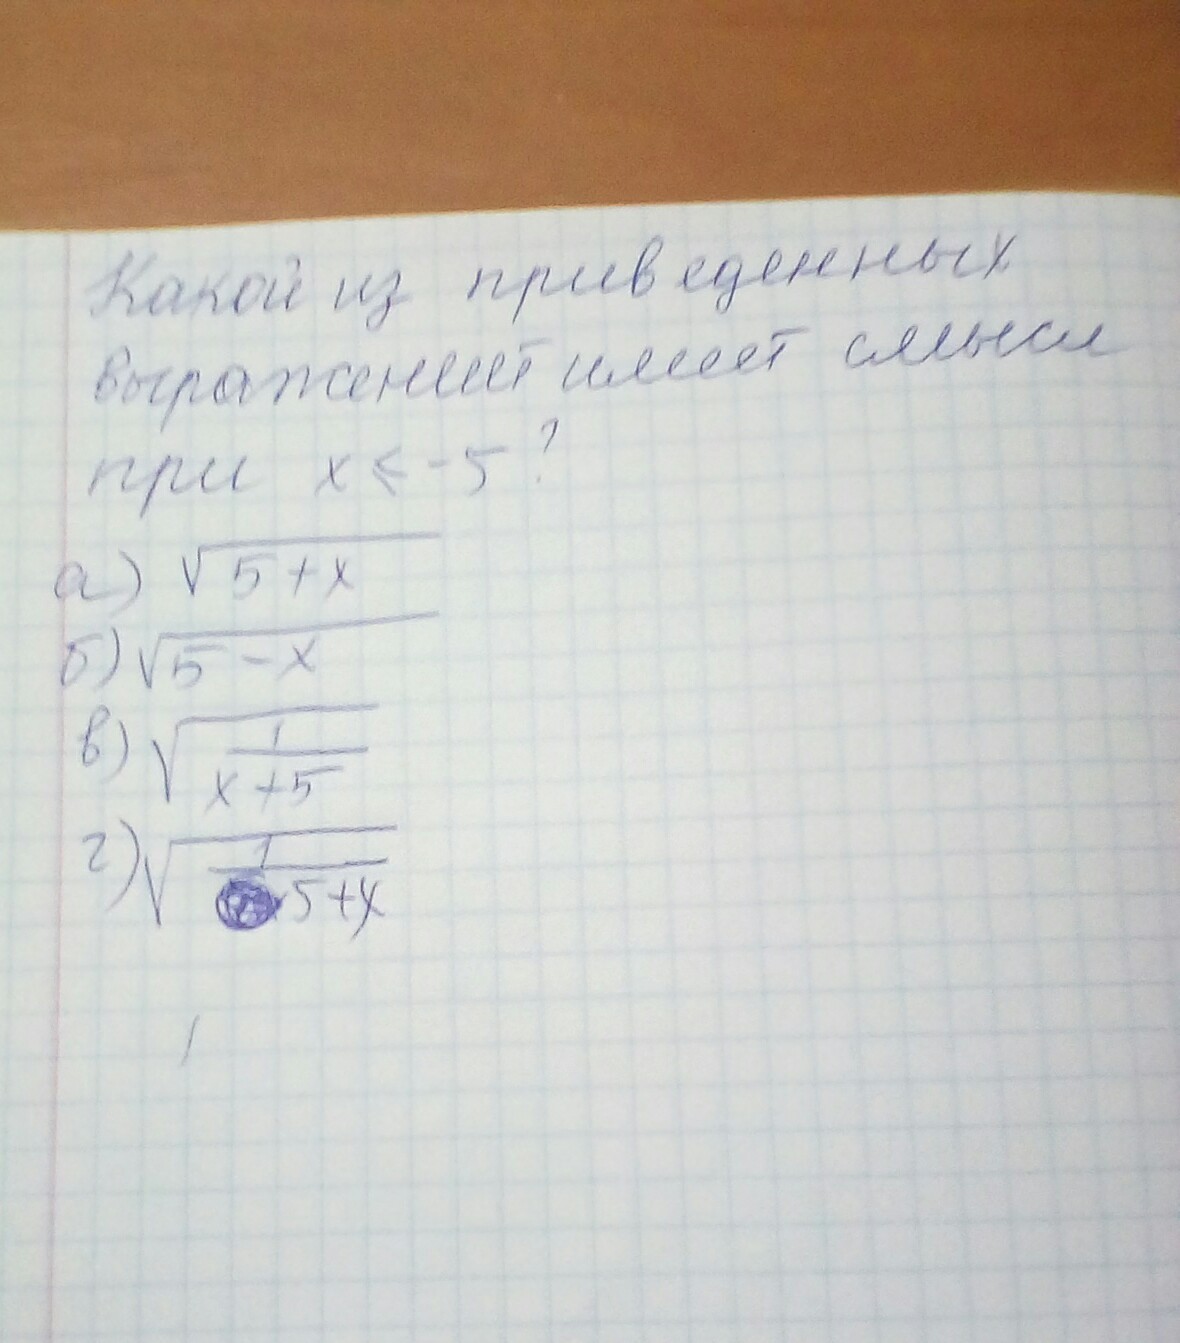 Какой из приведенных
выражений имеет смысл
при x ≤ -5?
а) √(5+x)
б) √(5-x)
в) √(1/(x+5))
г) √(1/(5+x))